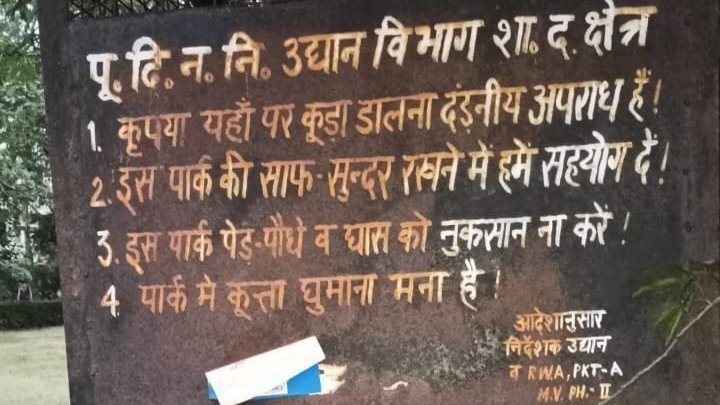 पू. दि. न. नि. उद्यान विभाग शा. द. क्षेत्र
1. कृपया यहाँ पर कूड़ा डालना दंड़नीय अपराध हैं!
2. इस पार्क की साफ-सुन्दर रखने में हमें सहयोग दें!
3. इस पार्क पेड़-पौधे व घास को नुकसान ना करें!
4 पार्क मे कूत्ता घुमाना मना है!
आदेशानुसार
निर्देशक उद्यान
व RWA, PKT-A
M.V. PH.-II